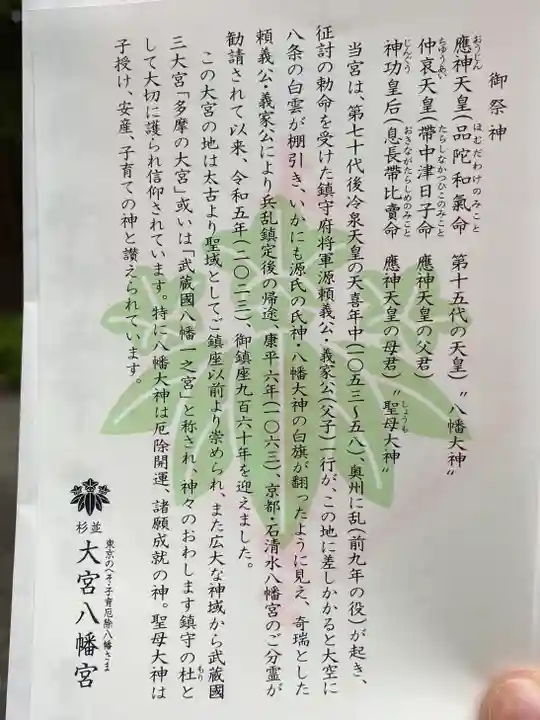 御祭神
應神天皇(品陀和氣命 第十五代の天皇)〝八幡大神〟
おうじん ほむだわけのみこと
仲哀天皇(帶中津日子命 應神天皇の父君)
ちゅうあい たらしなかつひこのみこと
神功皇后(息長帶比賣命 應神天皇の母君)〝聖母大神〟
じんぐう おきながたらしひめのみこと しょうも
当宮は、第七十代後冷泉天皇の天喜年中(一〇五三〜五八)、奥州に乱(前九年の役)が起き、
征討の勅命を受けた鎮守府将軍源頼義公・義家公(父子)一行が、この地に差しかかると大空に
八条の白雲が棚引き、いかにも源氏の氏神・八幡大神の白旗が翻ったように見え、奇瑞とした
頼義公・義家公により兵乱鎮定後の帰途、康平六年(一〇六三)、京都・石清水八幡宮のご分霊が
勧請されて以来、令和五年(二〇二三)、御鎮座九百六十年を迎えました。
この大宮の地は太古より聖域としてご鎮座以前より崇められ、また広大な神域から武蔵國
三大宮「多摩の大宮」或いは「武蔵國八幡一之宮」と称され、神々のおわします鎮守の杜と
もり
して大切に護られ信仰されています。特に八幡大神は厄除開運 諸願成就の神。聖母大神は
子授け、安産、子育ての神と讃えられています。
東京のへそ・子育厄除八幡さま
杉並 大宮八幡宮